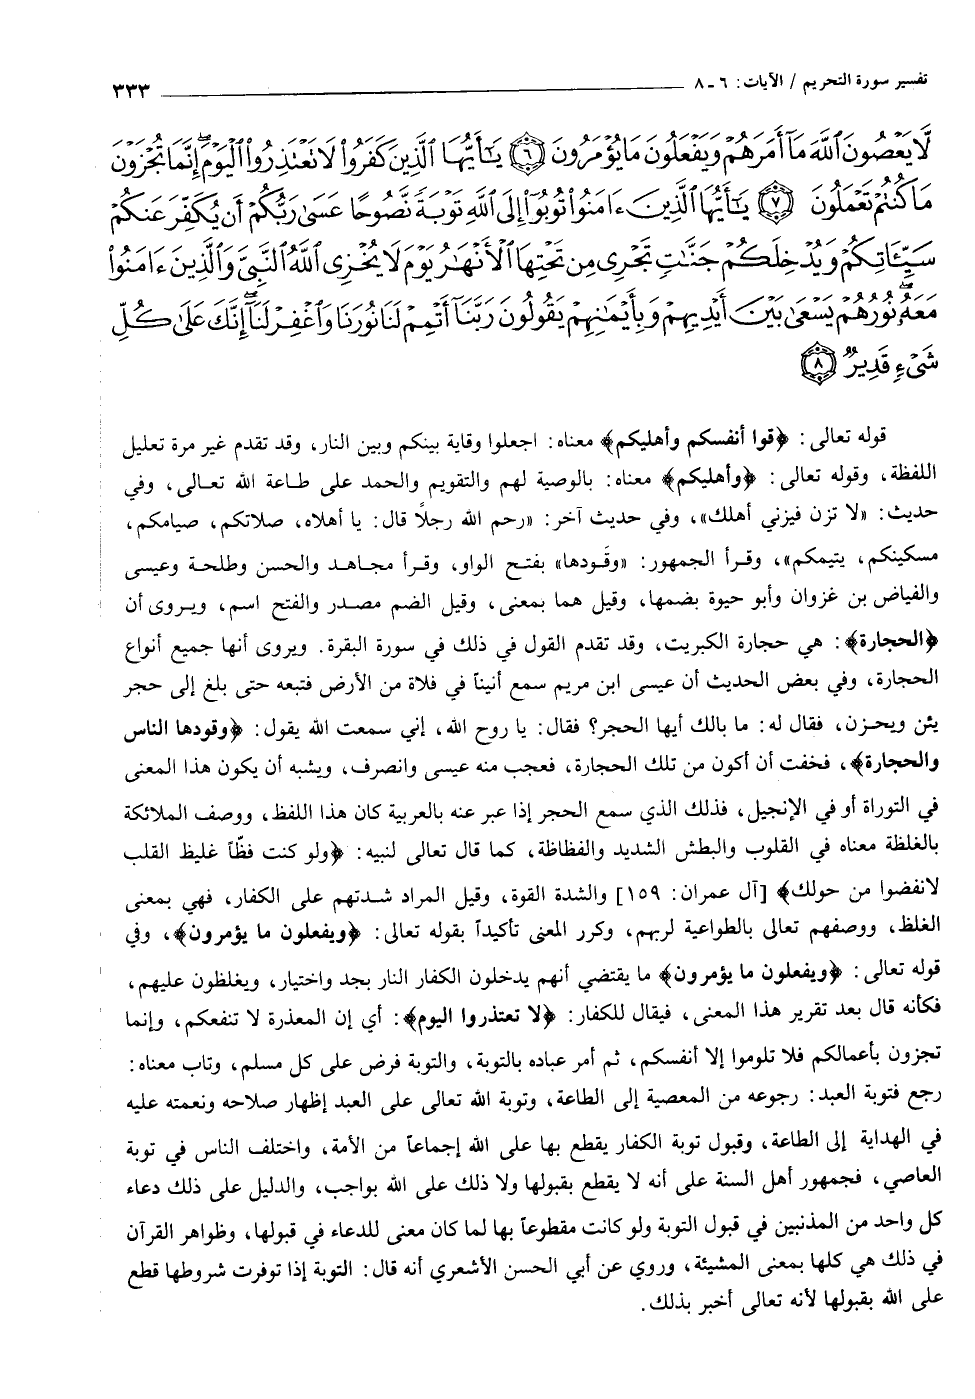 تفسير سورة التحريم / الآيات: ٦ - ٨ ٣٣٣
لَّا يَعْصُونَ ٱللَّهَ مَآ أَمَرَهُمْ وَيَفْعَلُونَ مَا يُؤْمَرُونَ ﴿٦﴾ يَٰٓأَيُّهَا ٱلَّذِينَ كَفَرُوا۟ لَا تَعْتَذِرُوا۟ ٱلْيَوْمَ ۖ إِنَّمَا تُجْزَوْنَ
مَا كُنتُمْ تَعْمَلُونَ ﴿٧﴾ يَٰٓأَيُّهَا ٱلَّذِينَ ءَامَنُوا۟ تُوبُوٓا۟ إِلَى ٱللَّهِ تَوْبَةً نَّصُوحًا عَسَىٰ رَبُّكُمْ أَن يُكَفِّرَ عَنكُمْ
سَيِّـَٔاتِكُمْ وَيُدْخِلَكُمْ جَنَّٰتٍ تَجْرِى مِن تَحْتِهَا ٱلْأَنْهَٰرُ يَوْمَ لَا يُخْزِى ٱللَّهُ ٱلنَّبِىَّ وَٱلَّذِينَ ءَامَنُوا۟
مَعَهُۥ ۖ نُورُهُمْ يَسْعَىٰ بَيْنَ أَيْدِيهِمْ وَبِأَيْمَٰنِهِمْ يَقُولُونَ رَبَّنَآ أَتْمِمْ لَنَا نُورَنَا وَٱغْفِرْ لَنَآ ۖ إِنَّكَ عَلَىٰ كُلِّ
شَىْءٍ قَدِيرٌ ﴿٨﴾
قوله تعالى: ﴿قوا أنفسكم وأهليكم﴾ معناه: اجعلوا وقاية بينكم وبين النار، وقد تقدم غير مرة تعليل
اللفظة، وقوله تعالى: ﴿وأهليكم﴾ معناه: بالوصية لهم والتقويم والحمد على طاعة الله تعالى، وفي
حديث: «لا تزن فيزني أهلك»، وفي حديث آخر: «رحم الله رجلاً قال: يا أهلاه، صلاتكم، صيامكم،
مسكينكم، يتيمكم»، وقرأ الجمهور: «وَقودها» بفتح الواو، وقرأ مجاهد والحسن وطلحة وعيسى
والفياض بن غزوان وأبو حيوة بضمها، وقيل هما بمعنى، وقيل الضم مصدر والفتح اسم، ويروى أن
﴿الحجارة﴾: هي حجارة الكبريت، وقد تقدم القول في ذلك في سورة البقرة. ويروى أنها جميع أنواع
الحجارة، وفي بعض الحديث أن عيسى ابن مريم سمع أنيناً في فلاة من الأرض فتبعه حتى بلغ إلى حجر
يئن ويحزن، فقال له: ما بالك أيها الحجر؟ فقال: يا روح الله، إني سمعت الله يقول: ﴿وقودها الناس
والحجارة﴾، فخفت أن أكون من تلك الحجارة، فعجب منه عيسى وانصرف، ويشبه أن يكون هذا المعنى
في التوراة أو في الإنجيل، فذلك الذي سمع الحجر إذا عبر عنه بالعربية كان هذا اللفظ، ووصف الملائكة
بالغلظة معناه في القلوب والبطش الشديد والفظاظة، كما قال تعالى لنبيه: ﴿ولو كنت فظّاً غليظ القلب
لانفضوا من حولك﴾ [آل عمران: ١٥٩] والشدة القوة، وقيل المراد شدتهم على الكفار، فهي بمعنى
الغلظ، ووصفهم تعالى بالطواعية لربهم، وكرر المعنى تأكيداً بقوله تعالى: ﴿ويفعلون ما يؤمرون﴾، وفي
قوله تعالى: ﴿ويفعلون ما يؤمرون﴾ ما يقتضي أنهم يدخلون الكفار النار بجد واختيار، ويغلظون عليهم،
فكأنه قال بعد تقرير هذا المعنى، فيقال للكفار: ﴿لا تعتذروا اليوم﴾: أي إن المعذرة لا تنفعكم، وإنما
تجزون بأعمالكم فلا تلوموا إلا أنفسكم، ثم أمر عباده بالتوبة، والتوبة فرض على كل مسلم، وتاب معناه:
رجع فتوبة العبد: رجوعه من المعصية إلى الطاعة، وتوبة الله تعالى على العبد إظهار صلاحه ونعمته عليه
في الهداية إلى الطاعة، وقبول توبة الكفار يقطع بها على الله إجماعاً من الأمة، واختلف الناس في توبة
العاصي، فجمهور أهل السنة على أنه لا يقطع بقبولها ولا ذلك على الله بواجب، والدليل على ذلك دعاء
كل واحد من المذنبين في قبول التوبة ولو كانت مقطوعاً بها لما كان معنى للدعاء في قبولها، وظواهر القرآن
في ذلك هي كلها بمعنى المشيئة، وروي عن أبي الحسن الأشعري أنه قال: التوبة إذا توفرت شروطها قطع
على الله بقبولها لأنه تعالى أخبر بذلك.